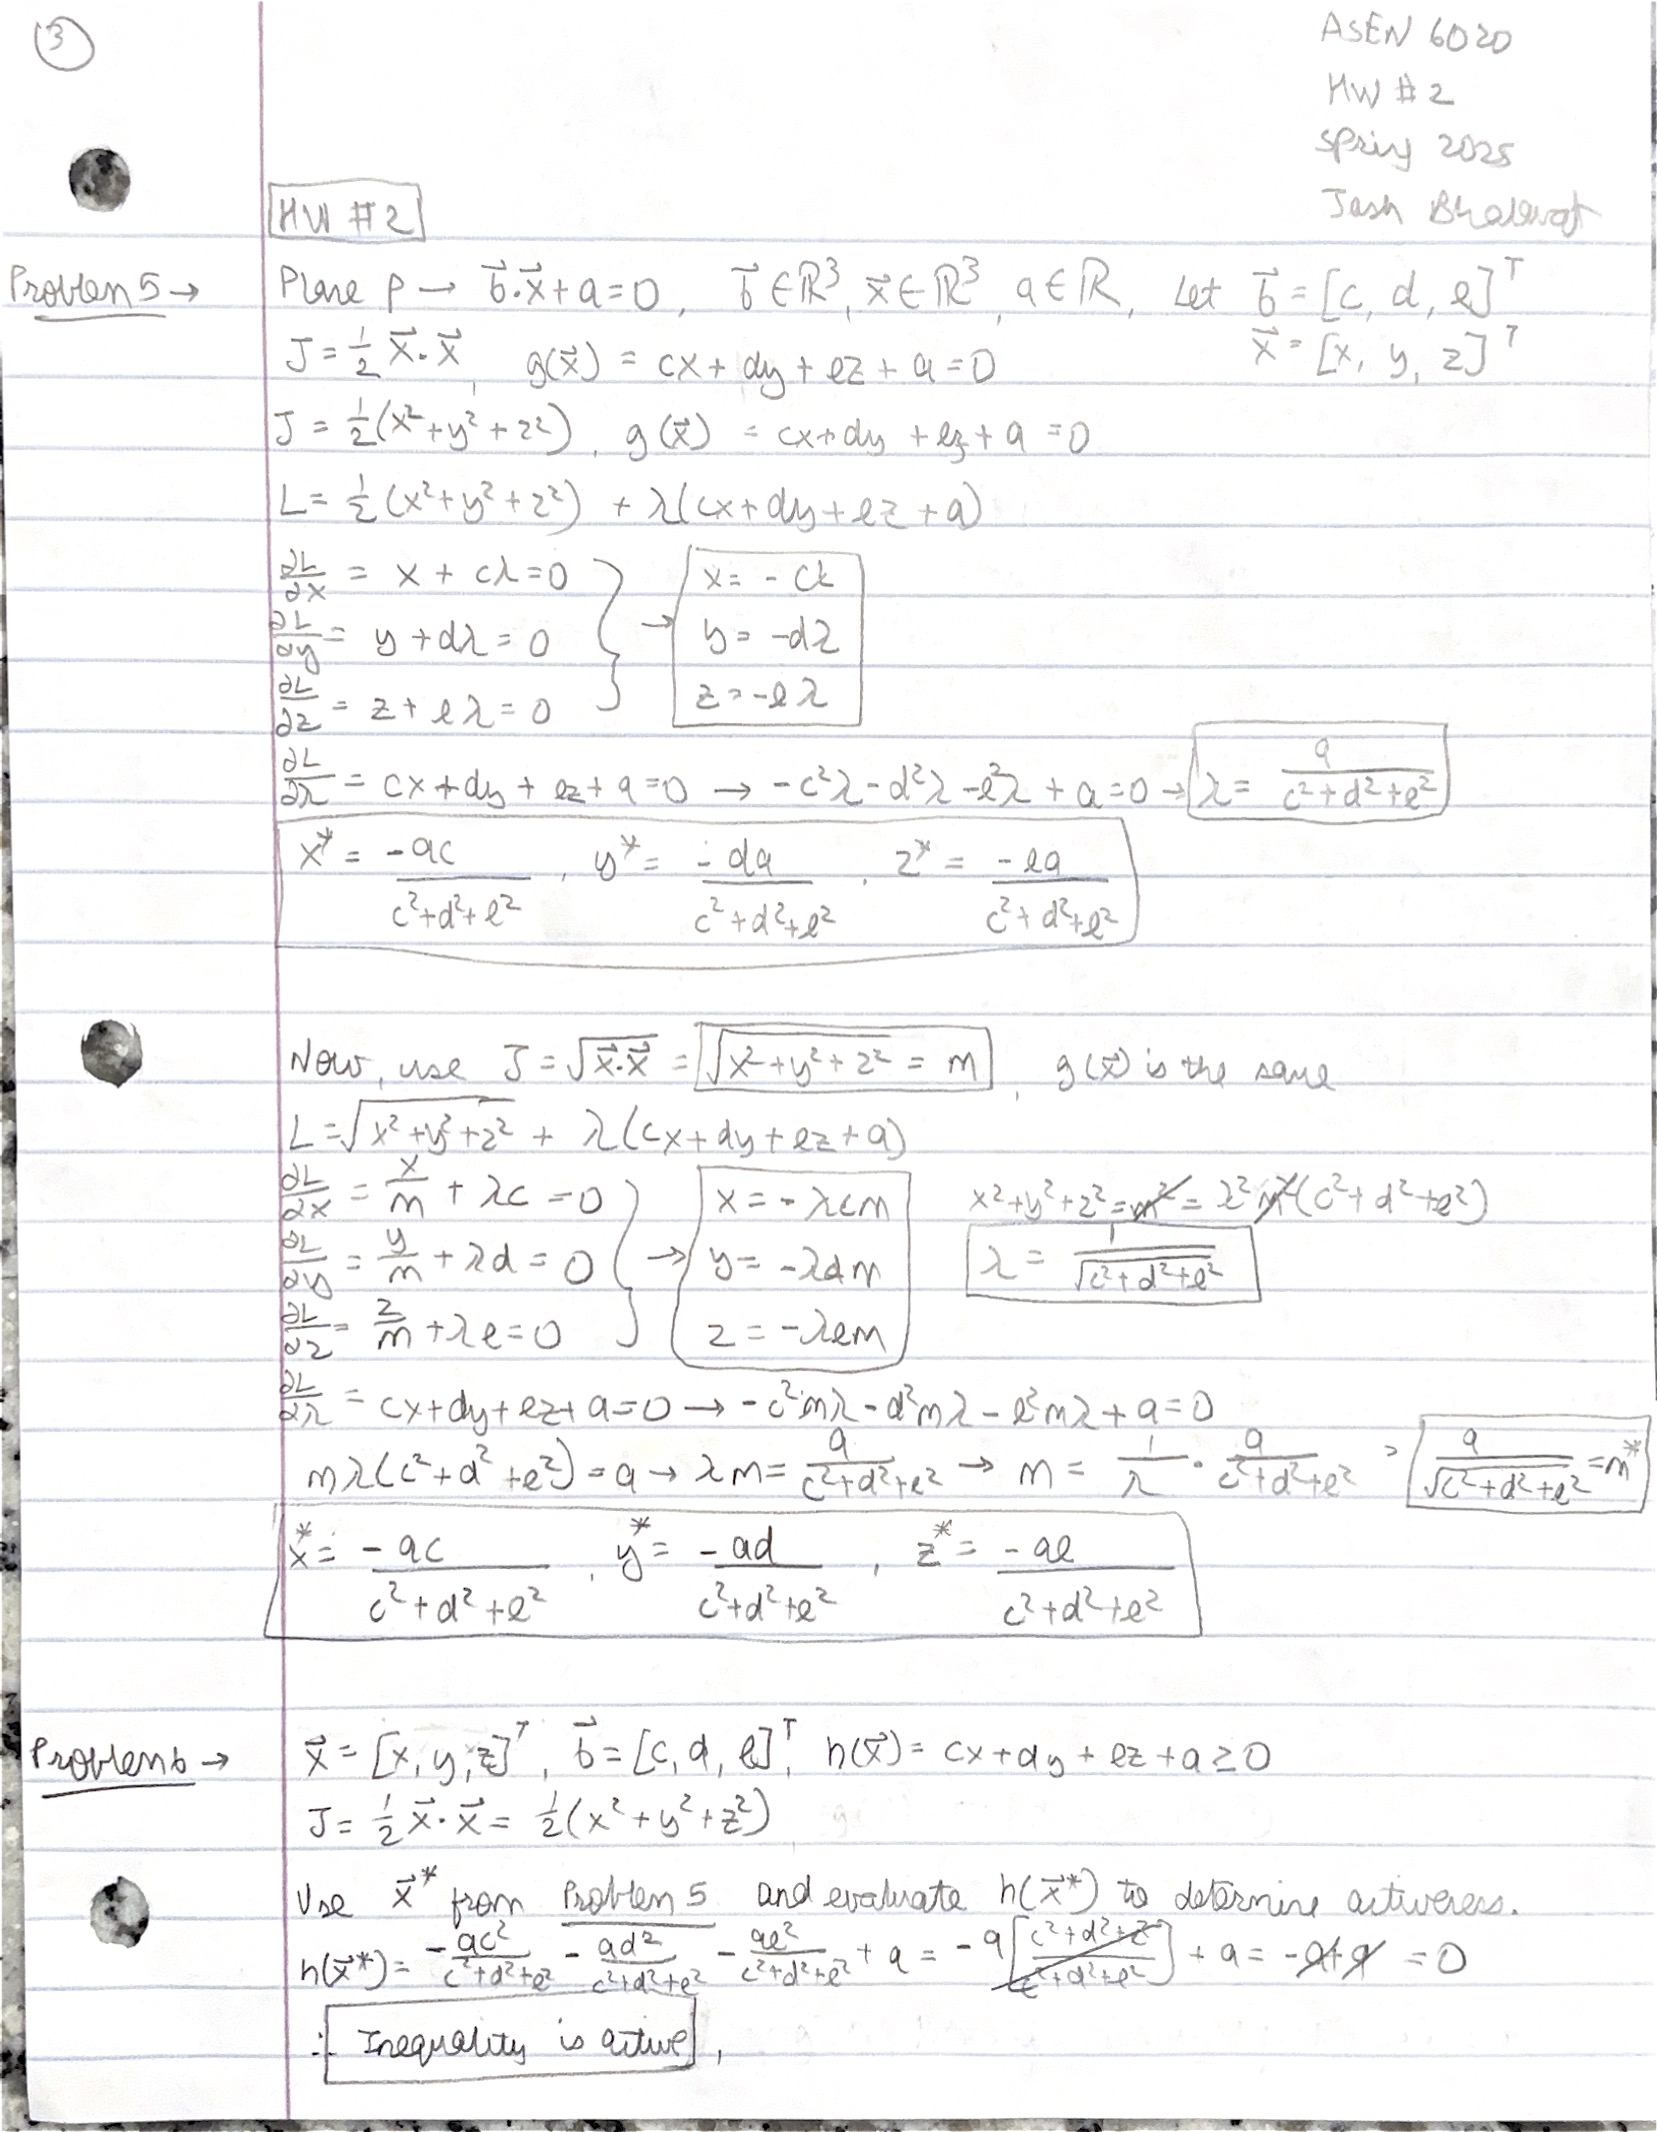 3
ASEN 6020
HW #2
Spring 2025
HW #2
Problem 5 → Plane P → b⃗·x⃗+a=0, b⃗∈ℝ³, x⃗∈ℝ³, a∈ℝ, Let b⃗=[c, d, e]ᵀ
x⃗=[x, y, z]ᵀ
J = 1/2 x⃗·x⃗, g(x⃗) = cx+dy+ez+a=0
J = 1/2(x²+y²+z²), g(x⃗) = cx+dy+ez+a=0
L = 1/2(x²+y²+z²) + λ(cx+dy+ez+a)
∂L/∂x = x + cλ=0 → x = -cλ
∂L/∂y = y + dλ = 0 y = -dλ
∂L/∂z = z + eλ = 0 z = -eλ
∂L/∂λ = cx+dy+ez+a=0 → -c²λ-d²λ-e²λ+a=0 → λ = a/(c²+d²+e²)
x* = -ac/(c²+d²+e²), y* = -da/(c²+d²+e²), z* = -ea/(c²+d²+e²)
Now, use J=√(x⃗·x⃗) = √(x²+y²+z²) = m, g(x⃗) is the same
L=√(x²+y²+z²) + λ(cx+dy+ez+a)
∂L/∂x = x/m + λc = 0 → x = -λcm x²+y²+z²=m²= λ²m²(c²+d²+e²)
∂L/∂y = y/m + λd = 0 y = -λdm λ = 1/√(c²+d²+e²)
∂L/∂z = z/m + λe = 0 z = -λem
∂L/∂λ = cx+dy+ez+a=0 → -c²mλ-d²mλ-e²mλ+a=0
mλ(c²+d²+e²)=a → λm= a/(c²+d²+e²) → m = 1/λ · a/(c²+d²+e²) = a/√(c²+d²+e²) = m*
x* = -ac/(c²+d²+e²), y* = -ad/(c²+d²+e²), z* = -ae/(c²+d²+e²)
Problem 6 → x⃗ = [x, y, z]ᵀ, b⃗=[c, d, e]ᵀ, h(x⃗) = cx+dy+ez+a≥0
J = 1/2 x⃗·x⃗ = 1/2(x²+y²+z²)
Use x⃗* from Problem 5 and evaluate h(x⃗*) to determine activeness.
h(x⃗*) = -ac²/(c²+d²+e²) - ad²/(c²+d²+e²) - ae²/(c²+d²+e²) + a = -a[(c²+d²+z²)/(c²+d²+e²)] + a = -a+a = 0
∴ Inequality is active,